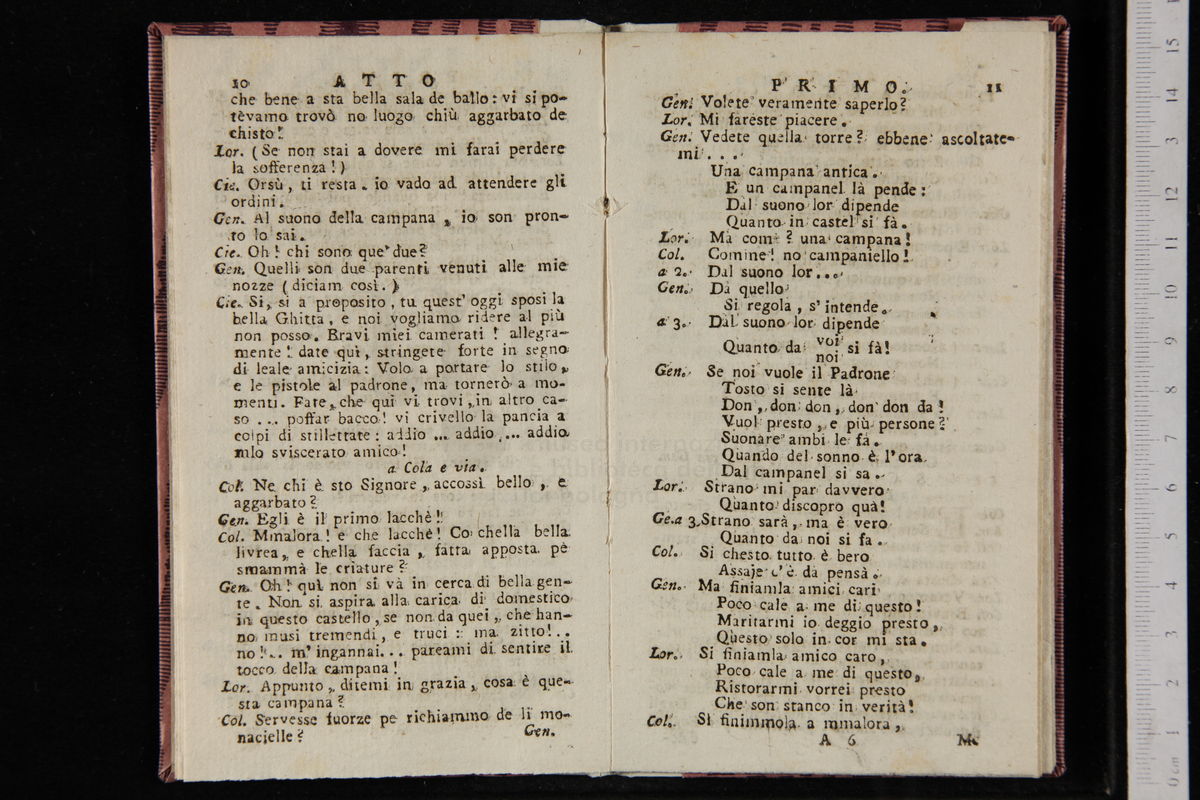 10 ATTO
che bene a sta bella sala de ballo: vi si po-
tèvamo trovò no luogo chiù aggarbato de
chisto!
Lor. (Se non stai a dovere mi farai perdere
la sofferenza!)
Cie. Orsù, ti resta. io vado ad attendere gli
ordini.
Gen. Al suono della campana, io son pron-
to lo sai.
Cie. Oh! chi sono que' due?
Gen. Quelli son due parenti venuti alle mie
nozze (diciam così.)
Cie. Si, si a proposito, tu quest' oggi sposi la
bella Ghitta, e noi vogliamo ridere al più
non posso. Bravi miei camerati! allegra-
mente! date qui, stringete forte in segno
di leale amicizia: Volo a portare lo stilo,
e le pistole al padrone, ma tornerò a mo-
menti. Fate, che qui vi trovi, in altro ca-
so ... poffar bacco! vi crivello la pancia a
colpi di stillettate: addio ... addio ... addio
mio sviscerato amico!
a Cola e via.
Col. Ne chi è sto Signore, accossì bello, e
aggarbato?
Gen. Egli è il primo lacchè!
Col. Mmalora! e che lacchè! Co chella bella
livrea, e chella faccia, fatta apposta pè
smammà le criature?
Gen. Oh! quì non si và in cerca di bella gen-
te. Non si aspira alla carica di domestico
in questo castello, se non da quei, che han-
no musi tremendi, e truci: ma zitto!..
no!.. m' ingannai... pareami di sentire il
tocco della campana!
Lor. Appunto, ditemi in grazia, cosa è que-
sta campana?
Col. Servesse fuorze pe richiammo de li mo-
nacielle?
Gen.
PRIMO. 11
Gen. Volete veramente saperlo?
Lor. Mi fareste piacere.
Gen. Vedete quella torre? ebbene ascoltate-
mi...
Una campana antica.
E un campanel là pende:
Dal suono lor dipende
Quanto in castel si fà.
Lor. Ma come? una campana!
Col. Comme! no campaniello!
a 2. Dal suono lor...
Gen. Da quello
Si regola, s' intende.
a 3. Dal suono lor dipende
Quanto da voi si fà!
noi
Gen. Se noi vuole il Padrone
Tosto si sente là
Don, don don, don don da!
Vuol presto, e più persone?
Suonare ambi le fà.
Quando del sonno è l'ora
Dal campanel si sa.
Lor. Strano mi par davvero
Quanto discopro quà!
Ge.a 3. Strano sarà, ma è vero
Quanto da noi si fa.
Col. Si chesto tutto è bero
Assaje c'è da pensà.
Gen. Ma finiamla amici cari
Poco cale a me di questo!
Maritarmi io deggio presto,
Questo solo in cor mi sta.
Lor. Si finiamla amico caro,
Poco cale a me di questo,
Ristorarmi vorrei presto
Che son stanco in verità!
Col. Si finimmola a mmalora,
A 6 Me